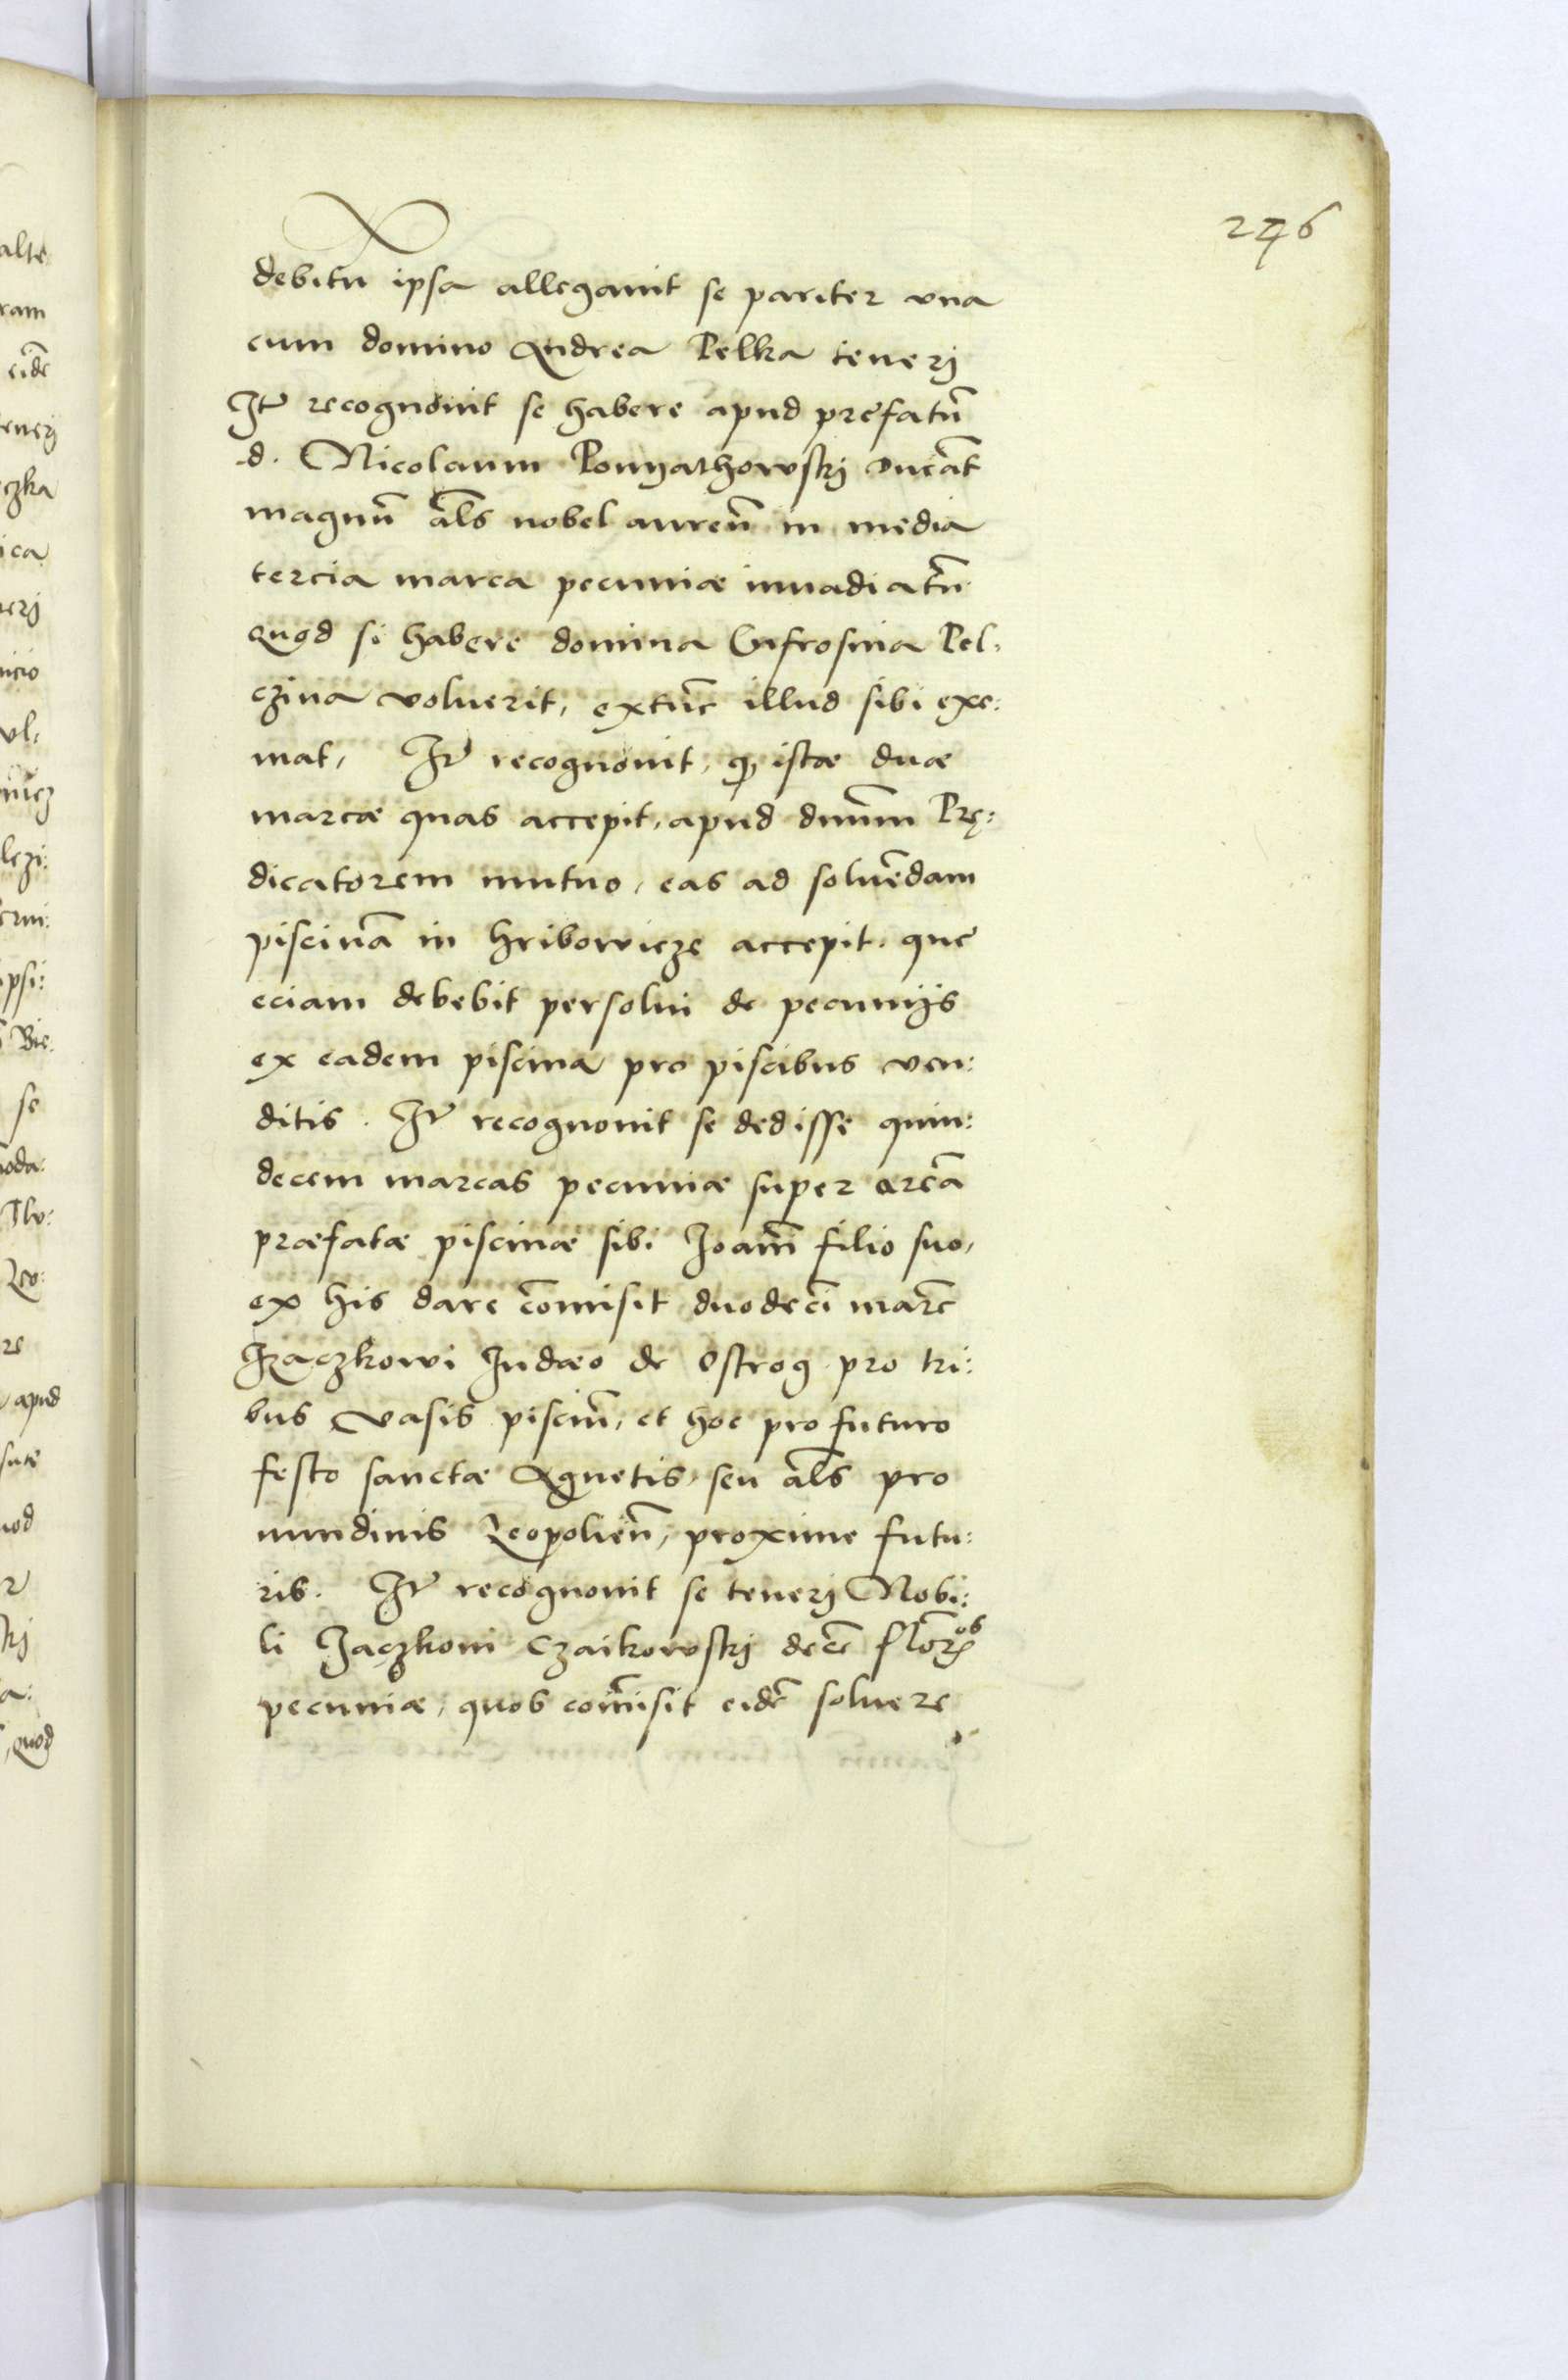 246
debitu ipsa allegauit se pariter vna
cum domino Andrea Pelka tenerj
Itẽ recognouit se habere apud prefatũ
d. Nicolaum Ponyathowskj ducãt
magnũ als nobel aureũ in media
tercia marca pecuniæ inuadiatũ
quod si habere domina Eufrosina Pel,
czina voluerit, extũc illud sibi exe:
mat, Itẽ recognouit, qꝫ istæ duæ
marcæ quas accepit, apud dnũm Prę:
dicatorem mutuo, eas ad soluẽdam
piscinã in hribowicze accepit. que
eciam debebit persolui de pecunijs
ex eadem piscina pro piscibus ven:
ditis. Itẽ recognouit se dedisse quin:
decem marcas pecuniæ super arcã
præfatæ piscinæ sibi Joañi filio suo,
ex his dare cõmisit duodeci marc
Jzaczkowi Judæo de Ostrog pro tri:
bus vasis pisciũ, et hoc pro futuro
festo sanctæ Agnetis, seu als pro
nundinis Leopolieñ, proxime futu:
ris. Itẽ recognouit se tenerj Nobi:
li Jaczkoni Czaikowskj decẽ floros
pecuniæ, quos com̃isit eidẽ soluere
alte
ram
eidẽ
tenerj
czka
ica
nerj
nicio
vl,
lczi:
ipsi:
Bie:
se
noda:
Leo:
re
apud
uod
kj
a:
, quod